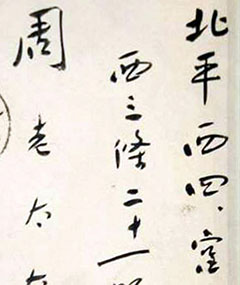 北平西四、宫
西三條二十一號
周老太太